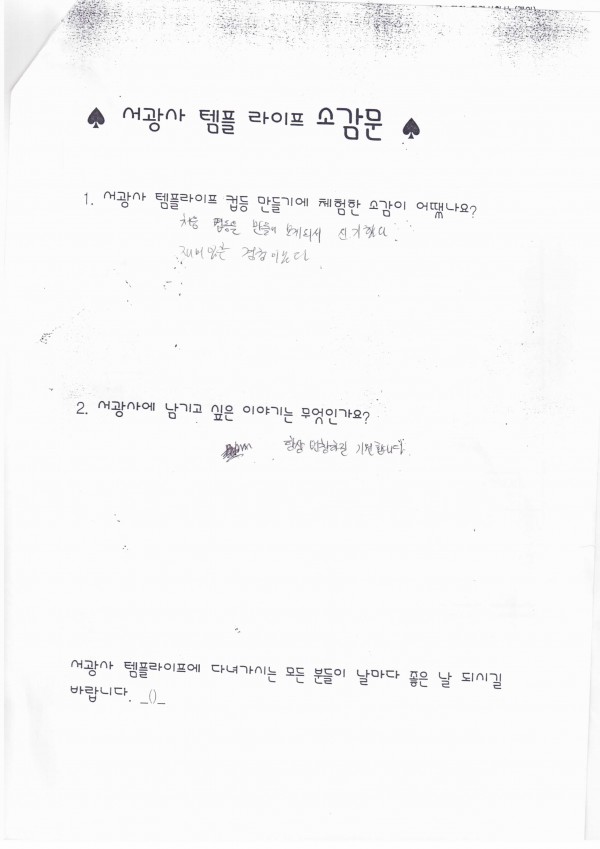 ♠ 서광사 템플 라이프 소감문 ♠
1. 서광사 템플라이프 컵등 만들기에 체험한 소감이 어땠나요?
처음 컵등을 만들어 보게되서 신기했다
재미있는 경험이었다
2. 서광사에 남기고 싶은 이야기는 무엇인가요?
항상 번창하길 기원합니다.
서광사 템플라이프에 다녀가시는 모든 분들이 날마다 좋은 날 되시길
바랍니다. _()_